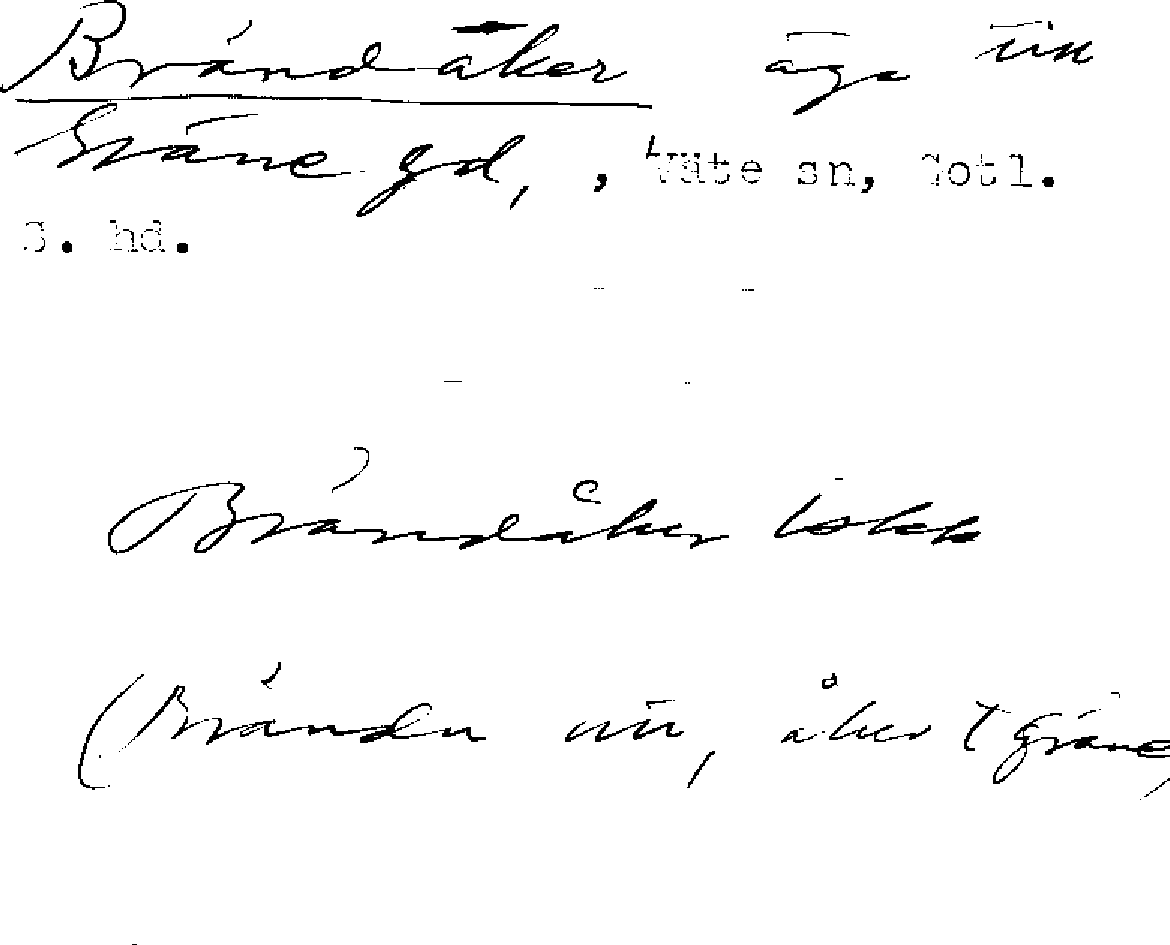 Brändåker äga till
Gräne gd, , Väte sn, Gotl.
S. hd.
Brändåker
(Brändu nu, åker t Gräne)